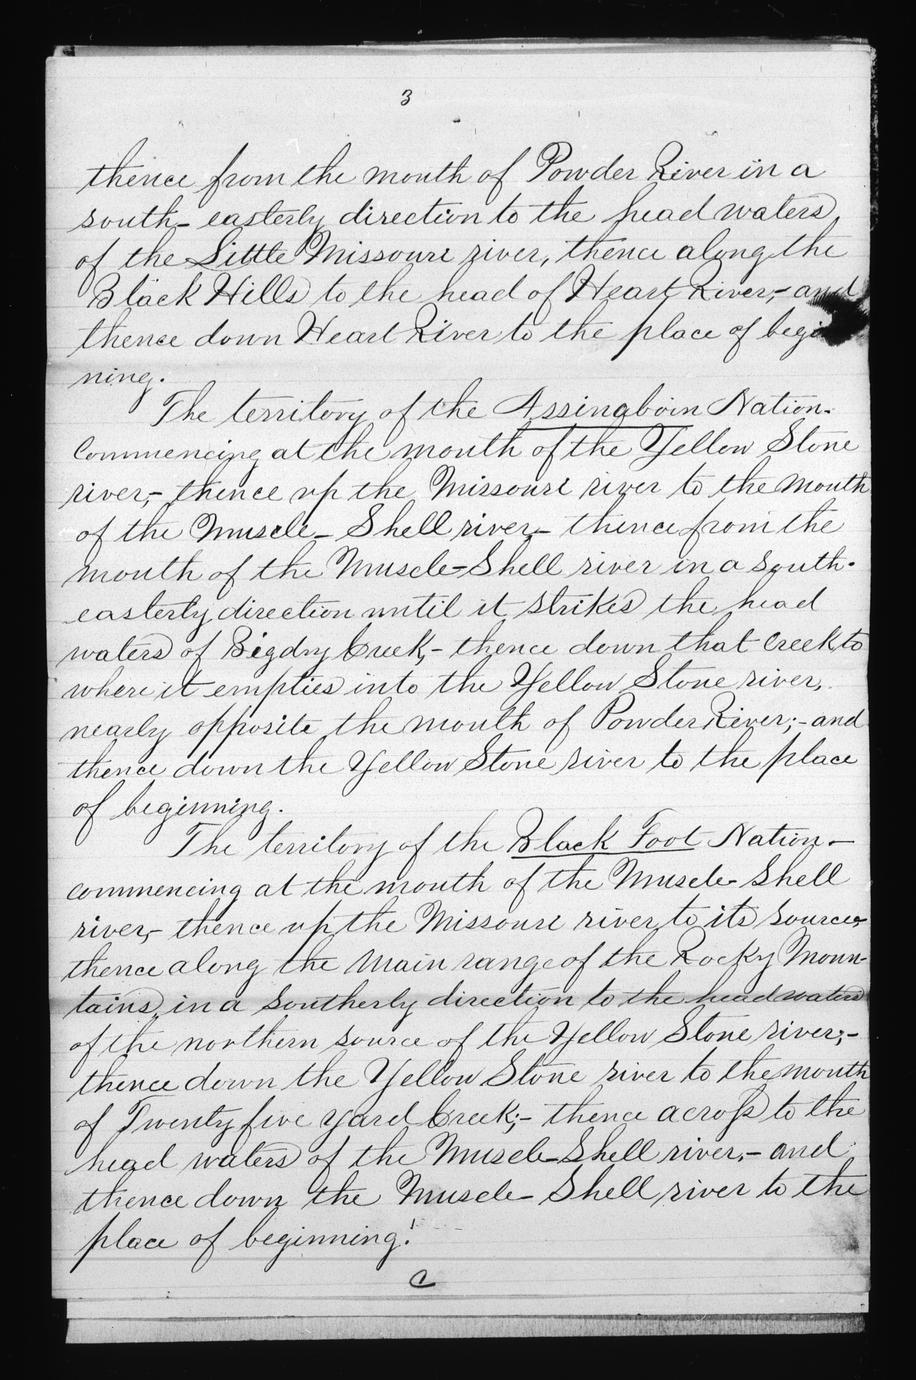 3
thence from the mouth of Powder River in a
south-easterly direction to the head waters
of the Little Missouri river, thence along the
Black Hills to the head of Heart River,- and
thence down Heart River to the place of begin
ning.
The territory of the Assinaboin Nation.
Commencing at the mouth of the Yellow Stone
river,- thence up the Missouri river to the mouth
of the Muscle-Shell river,- thence from the
mouth of the Muscle-Shell river in a south-
easterly direction until it strikes the head
waters of Bigdry Creek,- thence down that Creek to
where it empties into the Yellow Stone river,
nearly opposite the mouth of Powder River;- and
thence down the Yellow Stone river to the place
of beginning.
The territory of the Black Foot Nation-
commencing at the mouth of the Muscle-Shell
river,- thence up the Missouri river to its source,
thence along the Main range of the Rocky Moun-
tains, in a Southerly direction to the head waters
of the northern source of the Yellow Stone river;-
thence down the Yellow Stone river to the mouth
of Twenty five Yard Creek;- thence across to the
head waters of the Muscle-Shell river,- and
thence down the Muscle-Shell river to the
place of beginning.
C